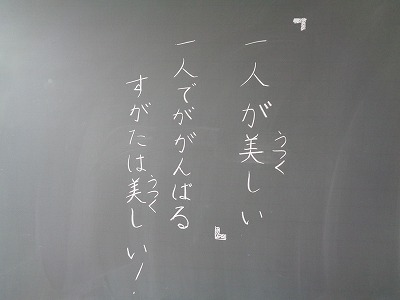 『一人が美しい』
うつく
一人でががんばる
すがたは美しい!
うつく